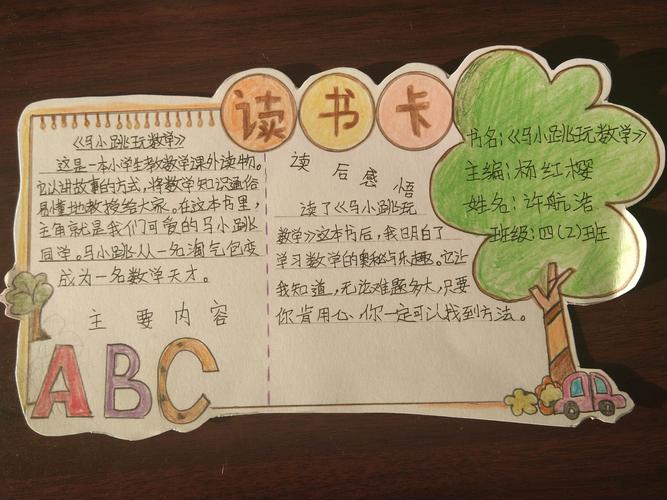 读书卡
《马小跳玩数学》
这是一本小学生教数学课外读物。
它以讲故事的方式,将数学知识通俗
易懂地教授给大家。在这本书里,
主角就是我们可爱的马小跳
同学。马小跳从一名淘气包变
成为一名数学天才。
主要内容
ABC
读后感悟
读了《马小跳玩
数学》这本书后,我日月白了
学习数学的奥秘与乐趣。它让
我知道,无论难题多大,只要
你肯用心,你一定可以找到方法。
书名:《马小跳玩数学》
主编:杨红樱
姓名:许航浩
班级:四(2)班